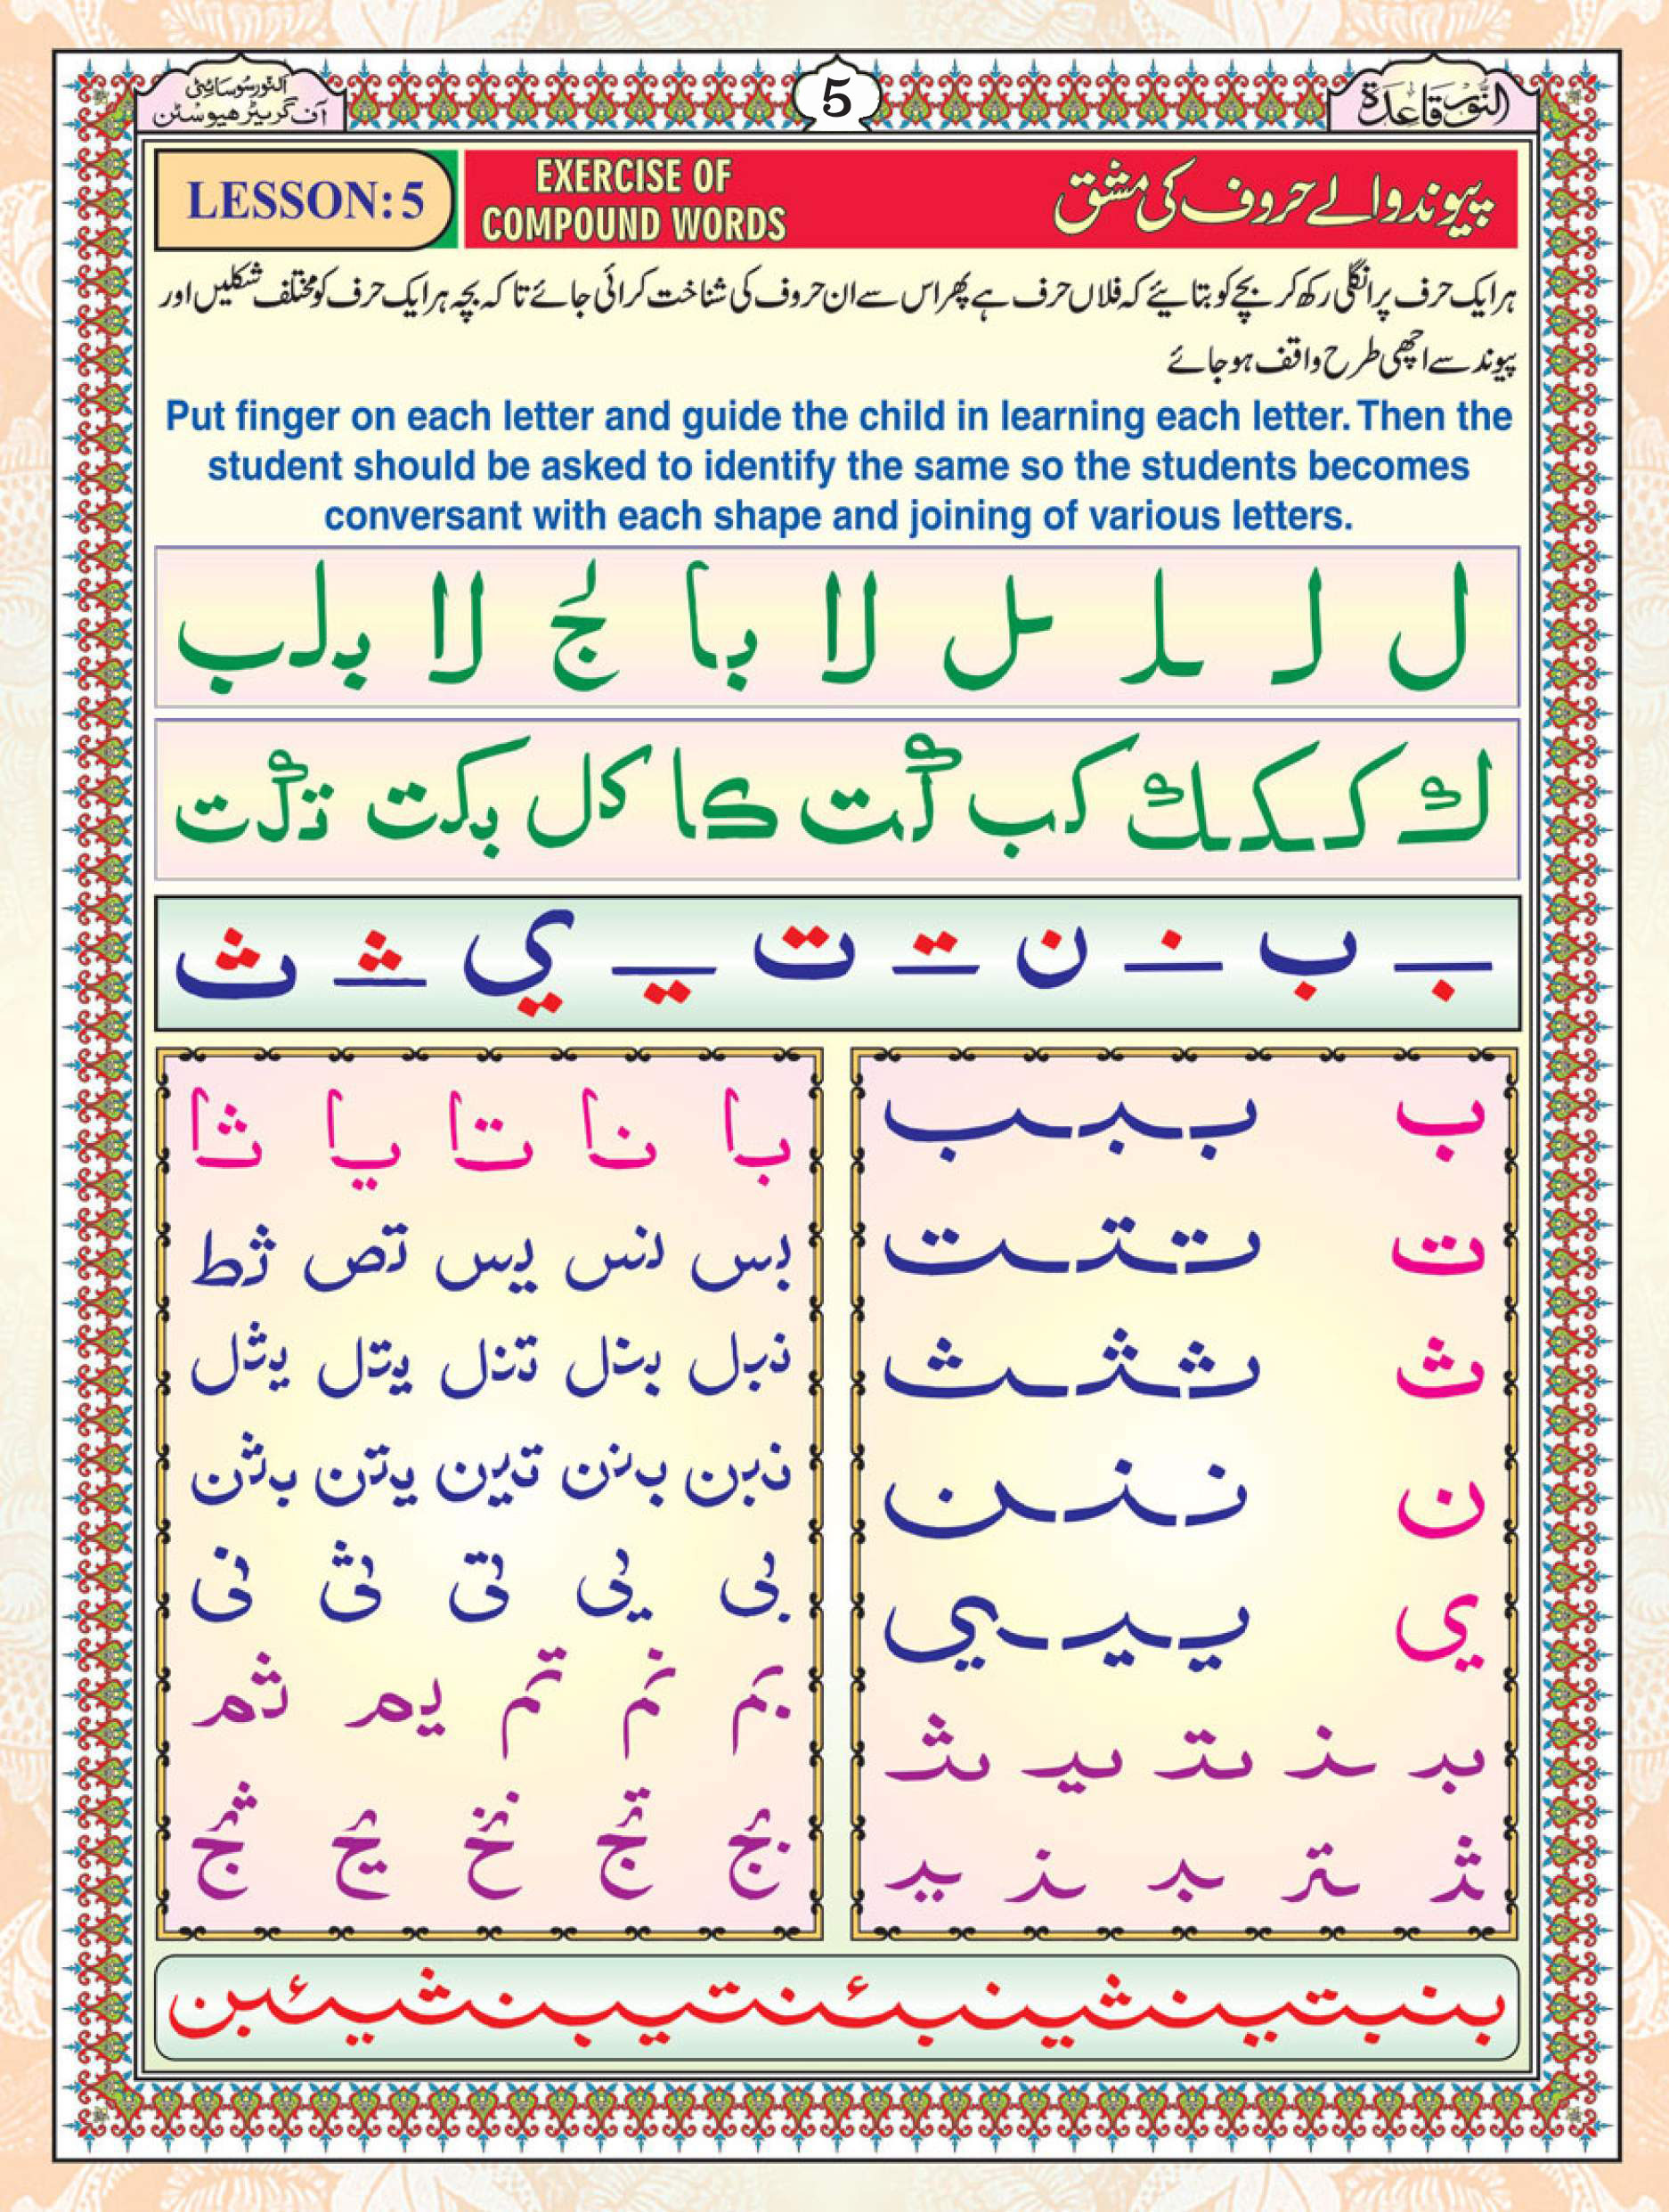 النُّور قَاعِدَة
5
اَلنّور سُوسَائِٹی
آف گریٹر ھیوسٹن
LESSON: 5
EXERCISE OF
COMPOUND WORDS
پیوند والے حروف کی مشق
ہر ایک حرف پر انگلی رکھ کر بچے کو بتایئے کہ فلاں حرف ہے پھر اس سے ان حروف کی شناخت کرائی جائے تاکہ بچہ ہر ایک حرف کو مختلف شکلیں اور
پیوند سے اچھی طرح واقف ہو جائے
Put finger on each letter and guide the child in learning each letter. Then the
student should be asked to identify the same so the students becomes
conversant with each shape and joining of various letters.
ل لـ ـلـ ـل لا با لج لا بلب
ك كـ ـكـ ـك كب كت كا كل بكت تكت
بـ ب نـ ن تـ ت يـ ي ثـ ث
ب بـبـب
ت تـتـت
ث ثـثـث
ن نـنـن
ي يـيـي
بر نر تر ير ثر
ثر تر بر نر ير
با نا تا يا ثا
بس نس يس تص ثط
نبل بنل تنل يتل يثل
نبن بنن تين يتن بثن
بى يى تى ثى نى
بم نم تم يم ثم
بج تج نخ يح ثج